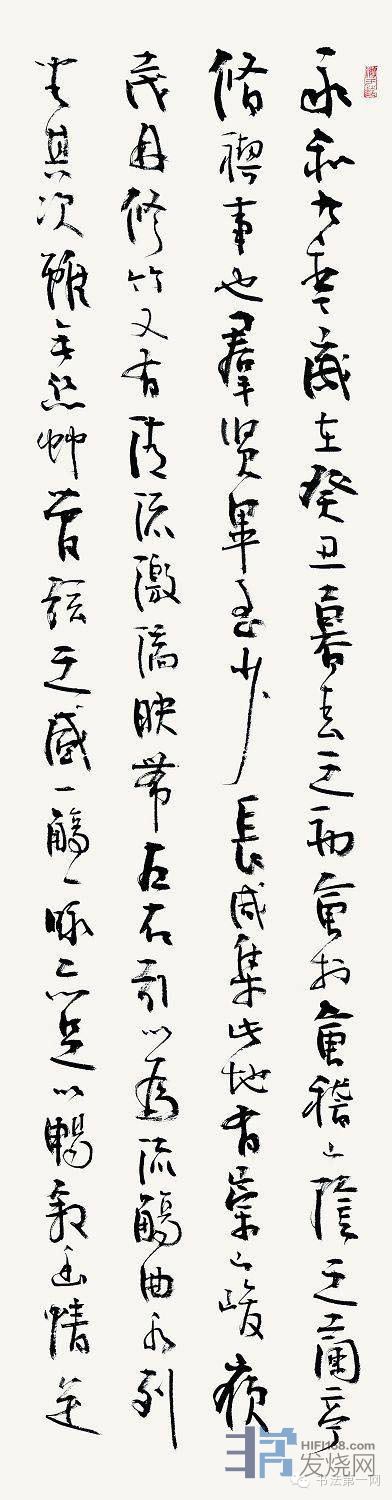 永和九年歲在癸丑暮春之初會於會稽山陰之蘭亭
脩禊事也羣賢畢至少長咸集此地有崇山峻嶺
茂林修竹又有清流激湍映帶左右引以為流觴曲水列
坐其次雖無絲竹管弦之盛一觴一詠亦足以暢敘幽情是
HIFI168.com
发烧网
书法第一网